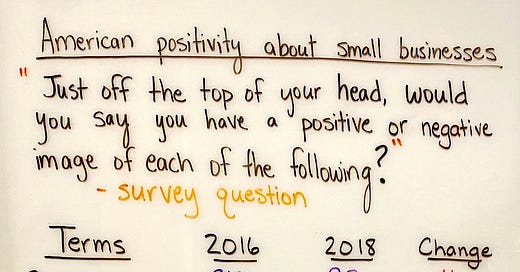 American positivity about small businesses
"Just off the top of your head, would
you say you have a positive or negative
image of each of the following?"
- survey question
Terms 2016 2018 Change